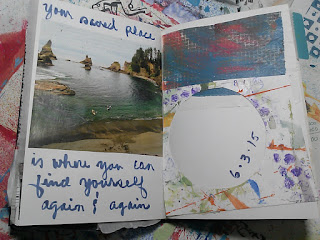 your sacred place
is where you can
find yourself
again & again
6.3.15